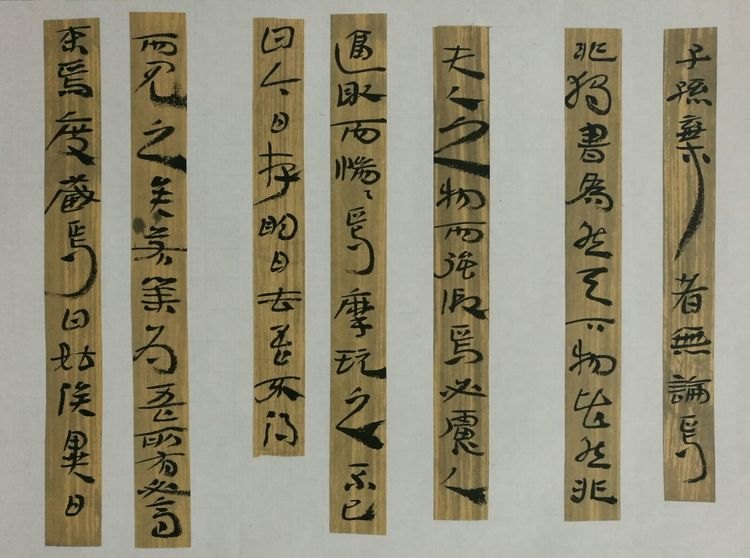 子孫棄者無論焉
非獨書為然天下物皆然非
夫人之物而強假焉必慮人
逼取而惴〻焉摩玩之不已
曰今日存明日去吾不得
而見之矣若業為吾所有必高
束焉庋藏焉曰姑俟異日